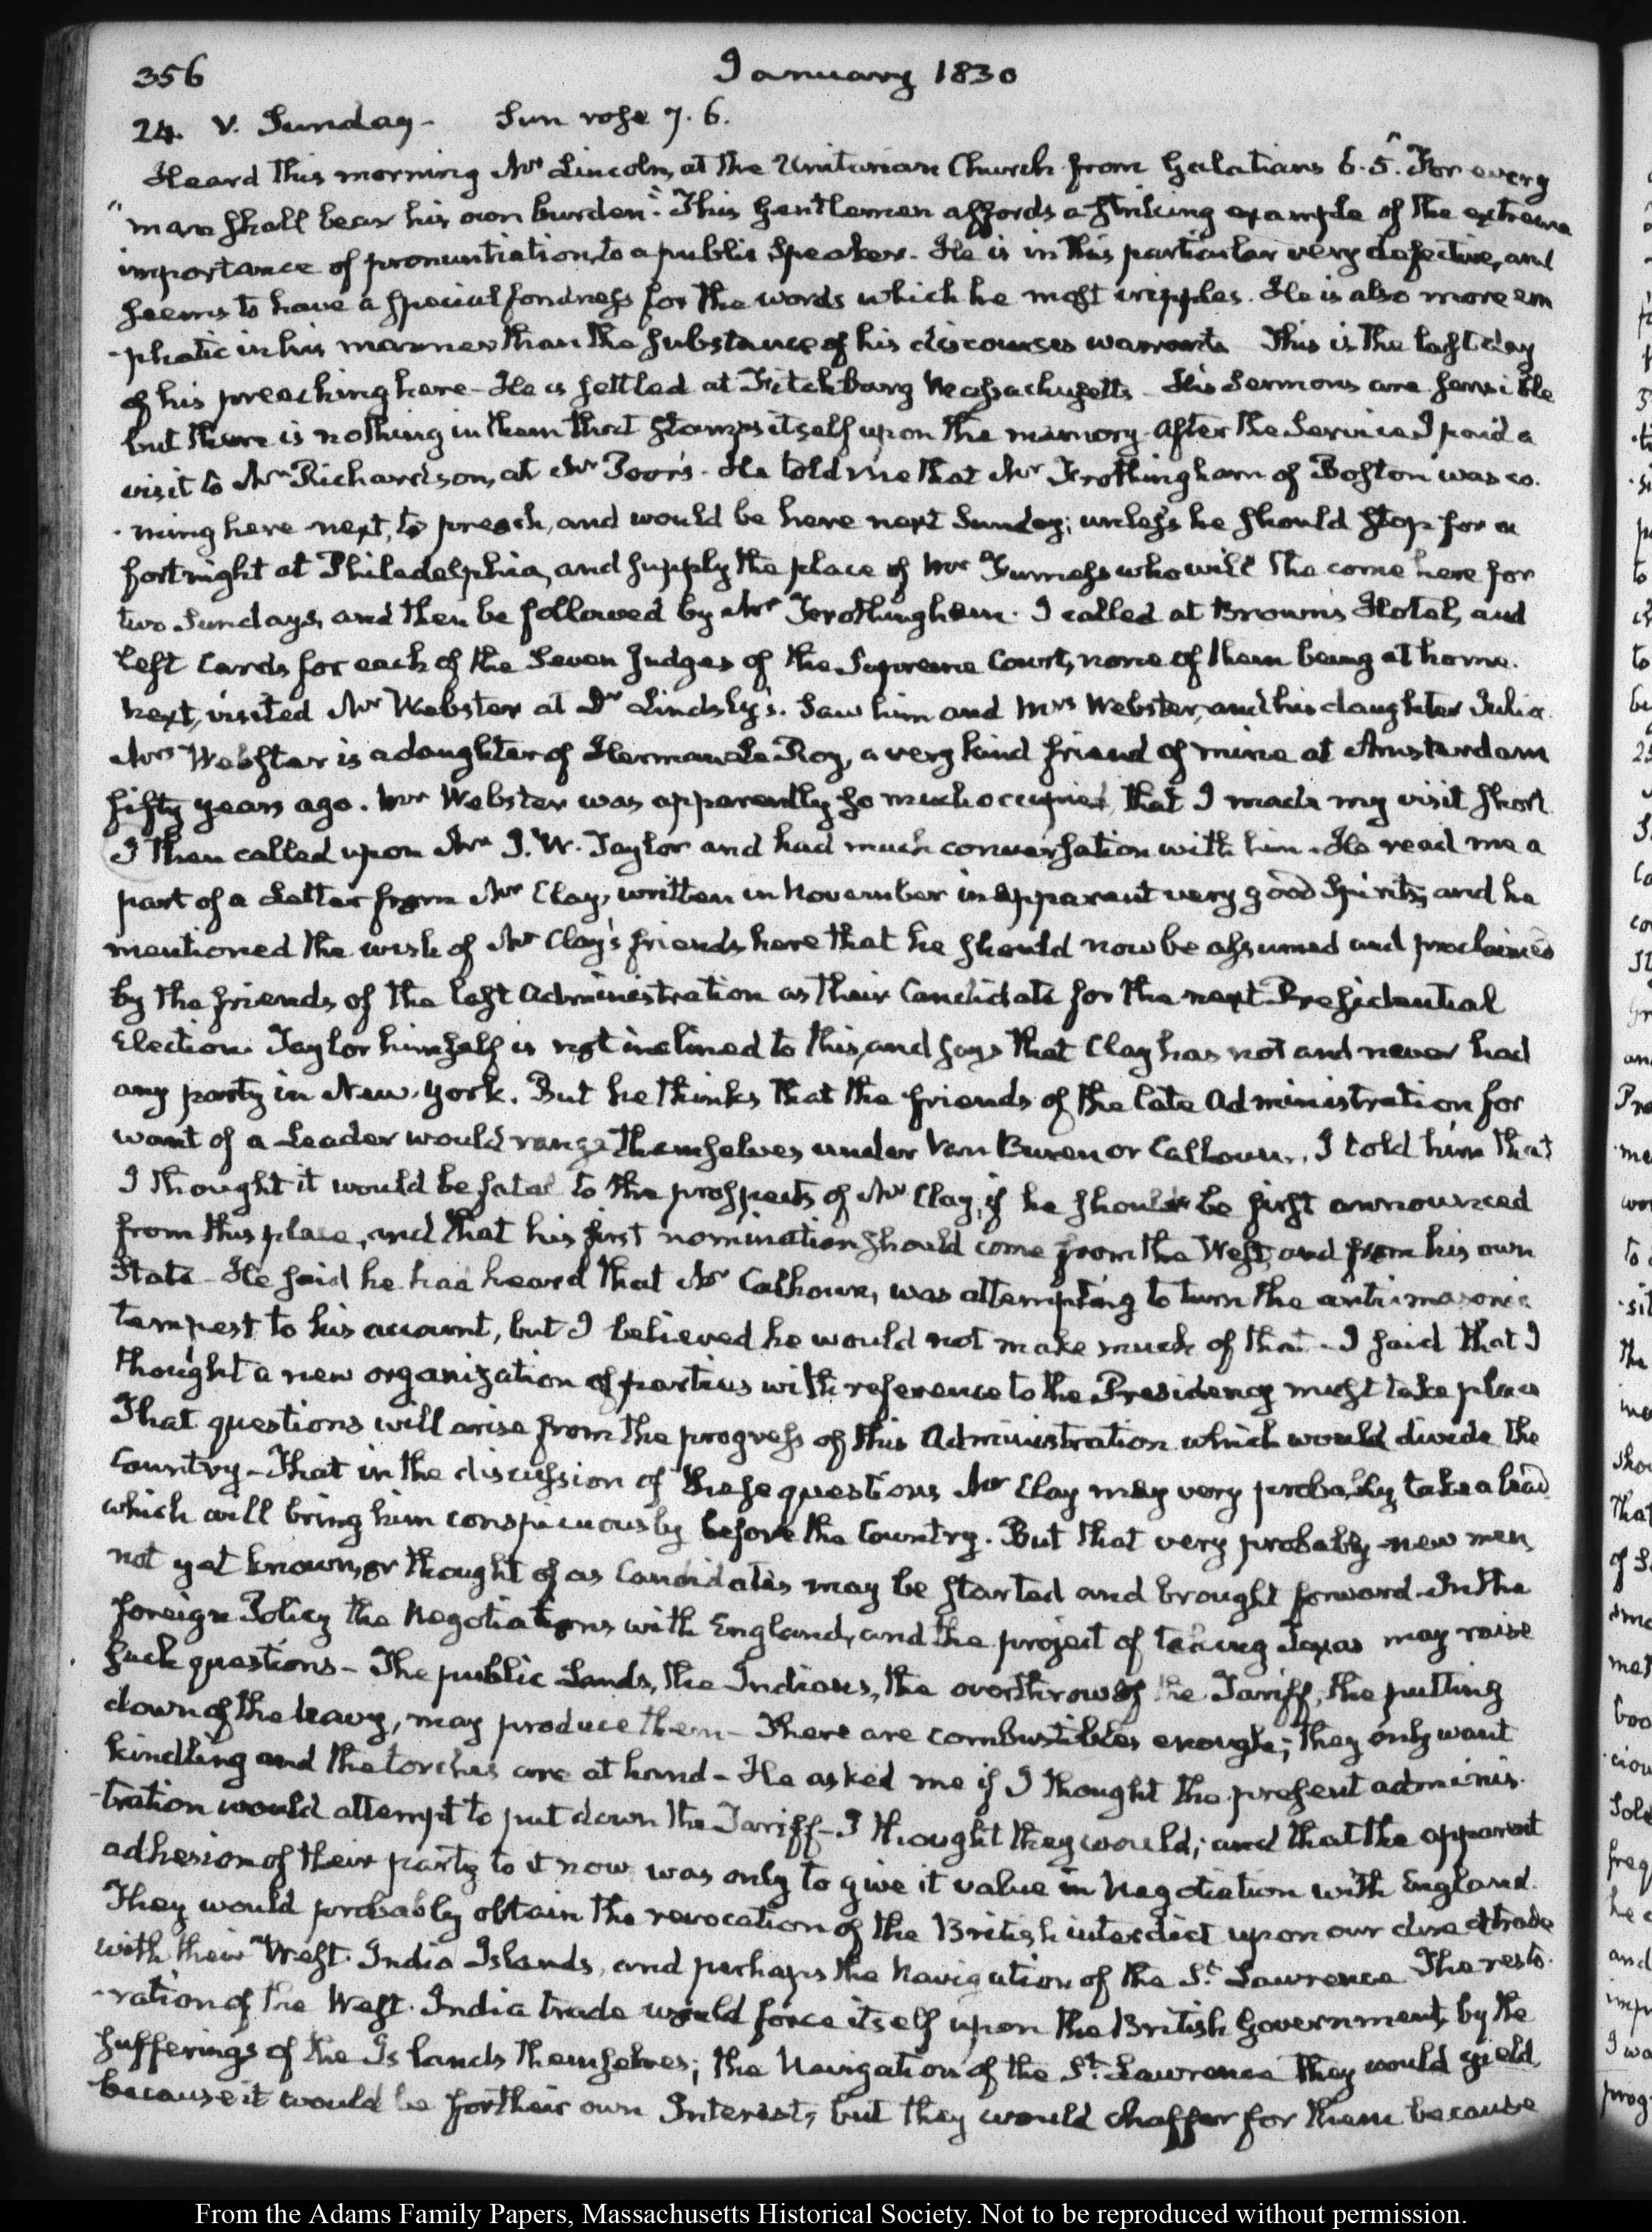 356
January 1830
24. V. Sunday - Sun rose 7. 6.
Heard this morning Mr Lincoln, at the Unitarian Church from Galatians 6. 5. "For every
"man shall bear his own burden." This Gentleman affords a striking example of the extreme
importance of pronuntiation, to a public Speaker. He is in this particular very defective, and
seems to have a special fondness for the words which he most cripples. He is also more em
-phatic in his manner than the substance of his discourses warrants This is the last day
of his preaching here - He is settled at Fitchburg Massachusetts - His Sermons are sensible
but there is nothing in them that stamps itself upon the memory. After the Service I paid a
visit to Mr Richardson, at Mr Poor's. He told me that Mr Frothingham of Boston was co-
-ming here next, to preach, and would be here next Sunday; unless he should stop for a
fortnight at Philadelphia, and supply the place of Mr Furness who will the come here for
two Sundays, and then be followed by Mr Frothingham. I called at Brown's Hotel, and
left Cards for each of the Seven Judges of the Supreme Court, none of them being at home.
Next, visited Mr Webster at Dr Lindsly's. Saw him and Mrs Webster, and his daughter Julia.
Mrs Webster is a daughter of Herman Le Roy, a very kind friend of mine at Amsterdam
fifty years ago. Mr Webster was apparently so much occupied that I made my visit short
I then called upon Mr J. W. Taylor and had much conversation with him. He read me a
part of a Letter from Mr Clay, written in November in apparent very good Spirits; and he
mentioned the wish of Mr Clay's friends here that he should now be assumed and proclaimed
by the friends of the last Administration as their Candidate for the next Presidential
Election. Taylor himself is not inclined to this, and says that Clay has not and never had
any party in New-York. But he thinks that the friends of the late Administration for
want of a Leader would range themselves under Van Buren or Calhoun. I told him that
I thought it would be fatal to the prospects of Mr Clay, if he should be first announced
from this place, and that his first nomination should come from the West, and from his own
State - He said he had heard that Mr Calhoun, was attempting to turn the antimasonic
tempest to his account, but I believed he would not make much of that - I said that I
thought a new organization of parties with reference to the Presidency must take place
That questions will arise from the progress of this Administration which would divide the
Country - That in the discussion of these questions Mr Clay may very probably take a lead
which will bring him conspicuously before the Country. But that very probably new men
not yet known, or thought of as Candidates may be started and brought forward - In the
foreign Policy the Negotiations with England, and the project of taking Texas may raise
such questions - The public Lands, the Indians, the overthrow of the Tariff, the putting
down of the Navy, may produce them - There are combustibles enough; they only want
kindling and the torches are at hand - He asked me if I thought the present adminis-
-tration would attempt to put down the Tariff - I thought they would; and that the apparent
adhesion of their party to it now was only to give it value in Negotiation with England.
They would probably obtain the revocation of the British interdict upon our direct trade
with their West-India Islands, and perhaps the Navigation of the St Lawrence The resto-
-ration of the West-India trade would force itself upon the British Government, by the
sufferings of the Islands themselves; the Navigation of the St Lawrence they would yield,
because it would be for their own Interest; but they would chaffer for them because
From the Adams Family Papers, Massachusetts Historical Society. Not to be reproduced without permission.